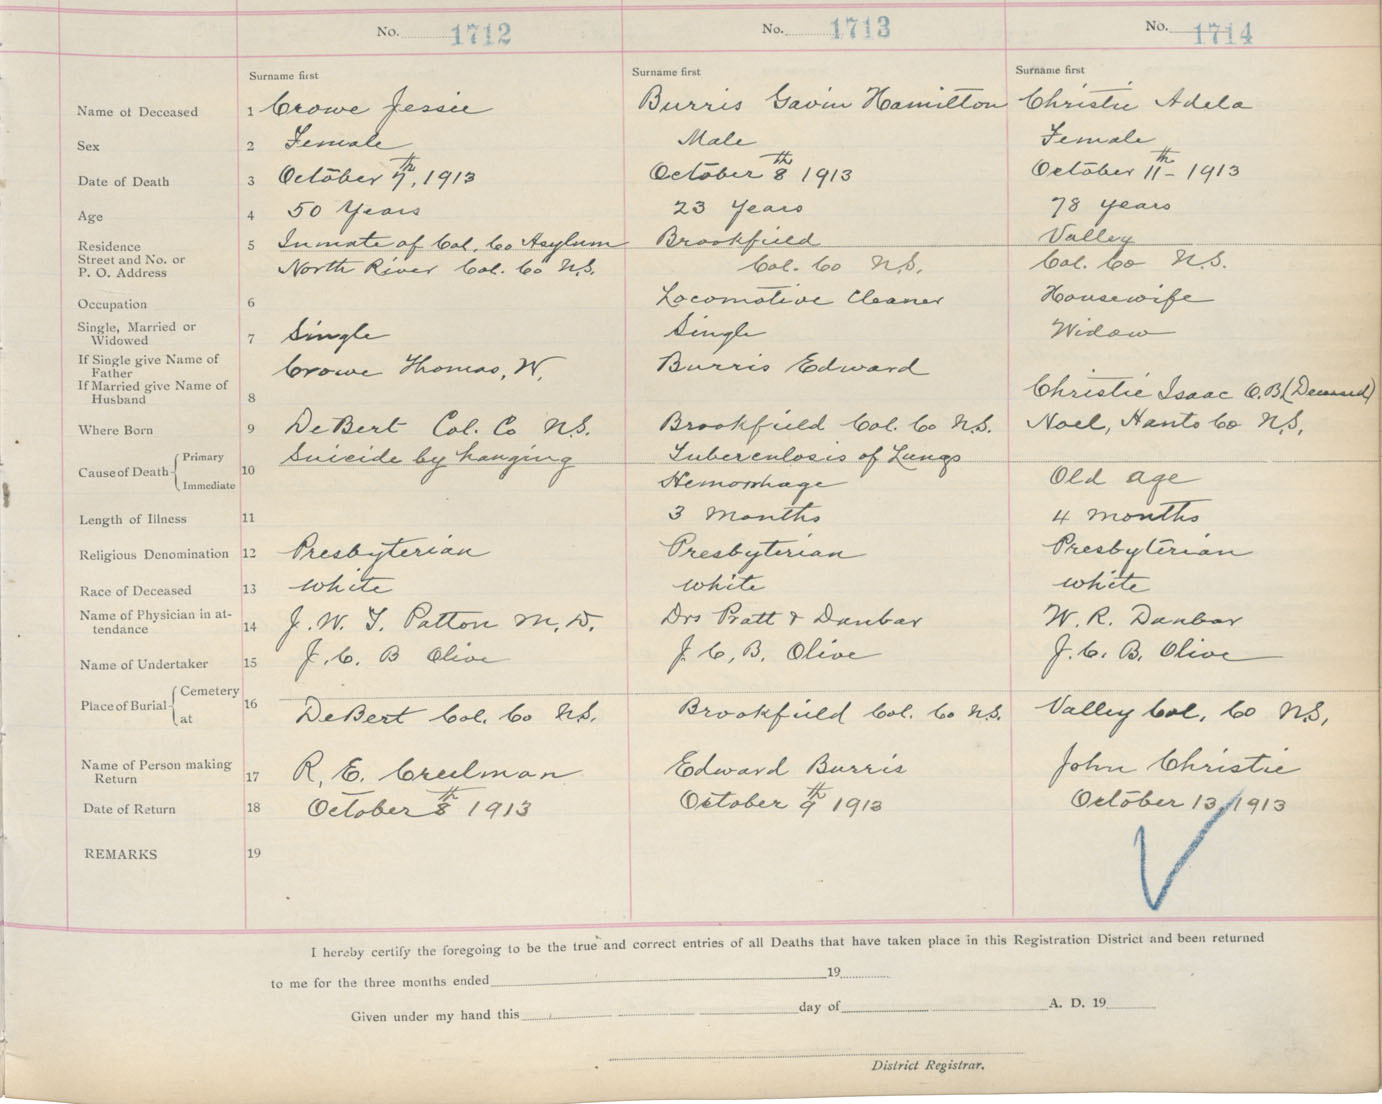 No. 1712 No. 1713 No. 1714
Surname first Surname first Surname first
Name of Deceased 1 Crowe Jessie Burris Gavin Hamilton Christie Adela
Sex 2 Female Male Female
Date of Death 3 October 7th, 1913 October 8th 1913 October 11th 1913
Age 4 50 Years 23 Years 78 years
Residence 5 Inmate of Col. Co Asylum Brookfield Valley
Street and No. or
P. O. Address North River Col. Co N.S. Col. Co N.S. Col. Co N.S.
Occupation 6 Locomotive Cleaner Housewife
Single, Married or
Widowed 7 Single Single Widow
If Single give Name of
Father Crowe Thomas, W. Burris Edward
If Married give Name of
Husband 8 Christie Isaac O.B. (Deceased)
Where Born 9 DeBert Col. Co N.S. Brookfield Col. Co N.S. Noel, Hants Co N.S.
Cause of Death Primary 10 Suicide by hanging Tuberculosis of Lungs
Immediate Hemorrhage Old age
Length of Illness 11 3 months 4 months
Religious Denomination 12 Presbyterian Presbyterian Presbyterian
Race of Deceased 13 white white white
Name of Physician in at-
tendance 14 J. W. T. Patton M. D. Drs Pratt & Dunbar W. R. Dunbar
Name of Undertaker 15 J. C. B Olive J. C, B. Olive J. C. B. Olive
Place of Burial Cemetery 16
at DeBert Col. Co N.S. Brookfield Col. Co N.S. Valley Col. Co N.S.
Name of Person making
Return 17 R. E. Creelman Edward Burris John Christie
Date of Return 18 October 8th 1913 October 9th 1913 October 13, 1913
REMARKS 19
I hereby certify the foregoing to be the true and correct entries of all Deaths that have taken place in this Registration District and been returned
to me for the three months ended 19
Given under my hand this day of A. D. 19
District Registrar.